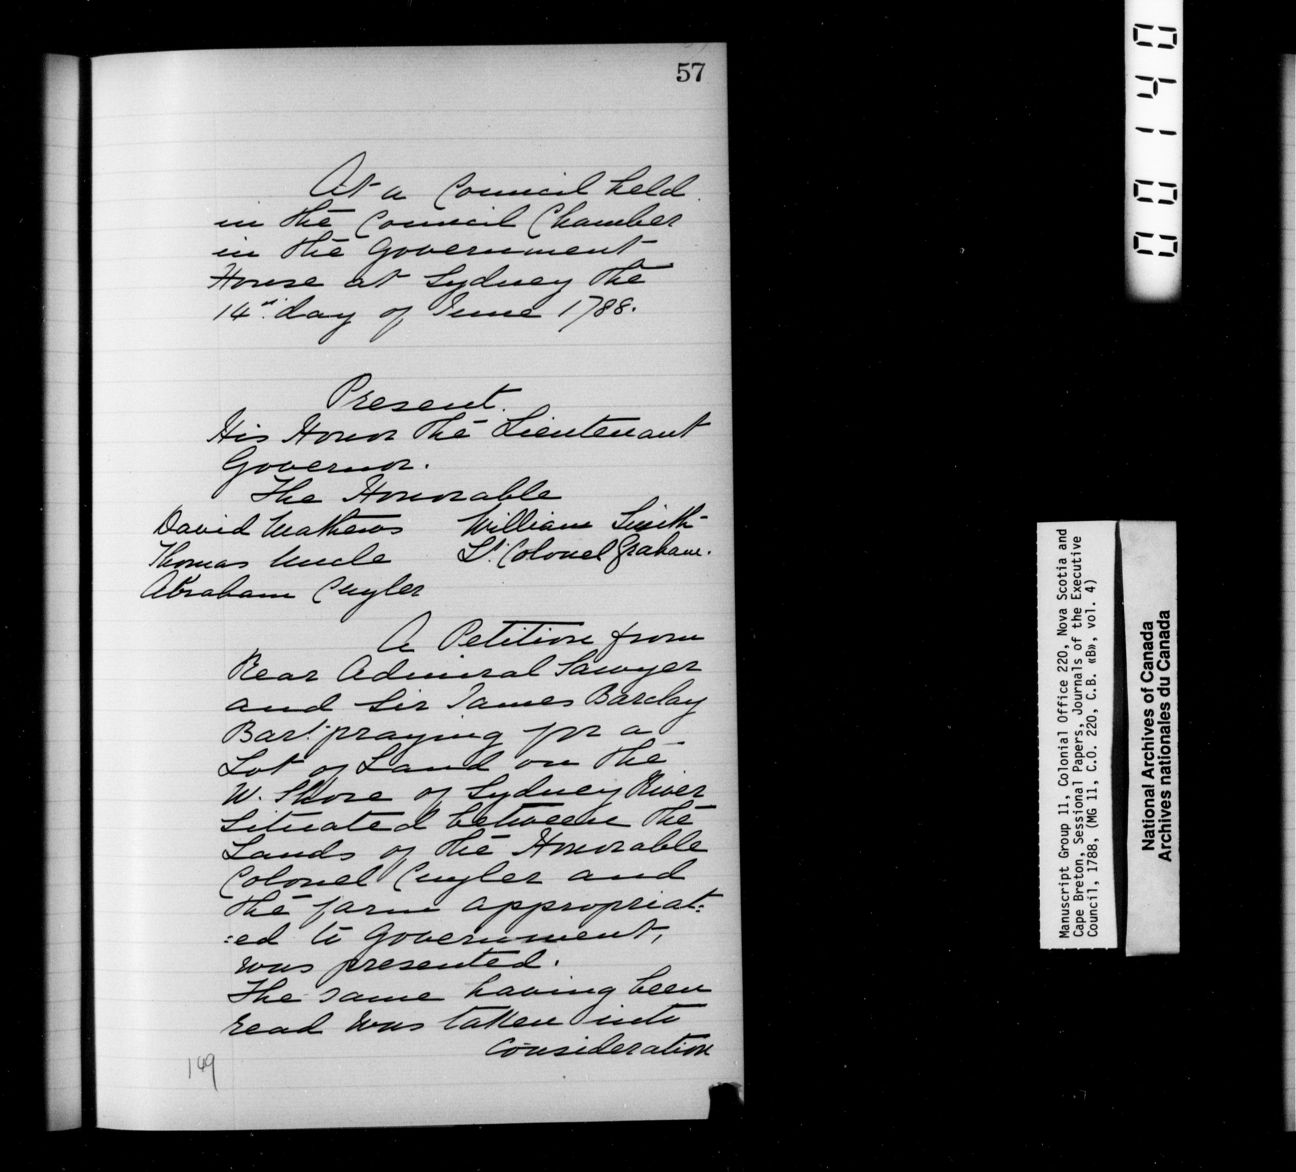 57
At a Council held
in the Council Chamber
in the Government
House at Sydney the
14th day of June 1788.
Present.
His Honor the Lieutenant
Governor.
The Honorable
David Mathews William Smith
Thomas Uncle Lt. Colonel Graham.
Abraham Cuyler
A Petition from
Rear Admiral Sawyer
and Sir James Barclay
Bart. praying for a
Lot of Land on the
W. Shore of Sydney River
Situated between the
Lands of the Honorable
Colonel Cuyler and
the farm appropriat:
:ed to Government,
was presented.
The same having been
read was taken into
Consideration
149
00140
Manuscript Group 11, Colonial Office 220, Nova Scotia and
Cape Breton, Sessional Papers, Journals of the Executive
Council, 1788, (MG 11, C.O. 220, C.B. «B», vol. 4)
National Archives of Canada
Archives nationales du Canada